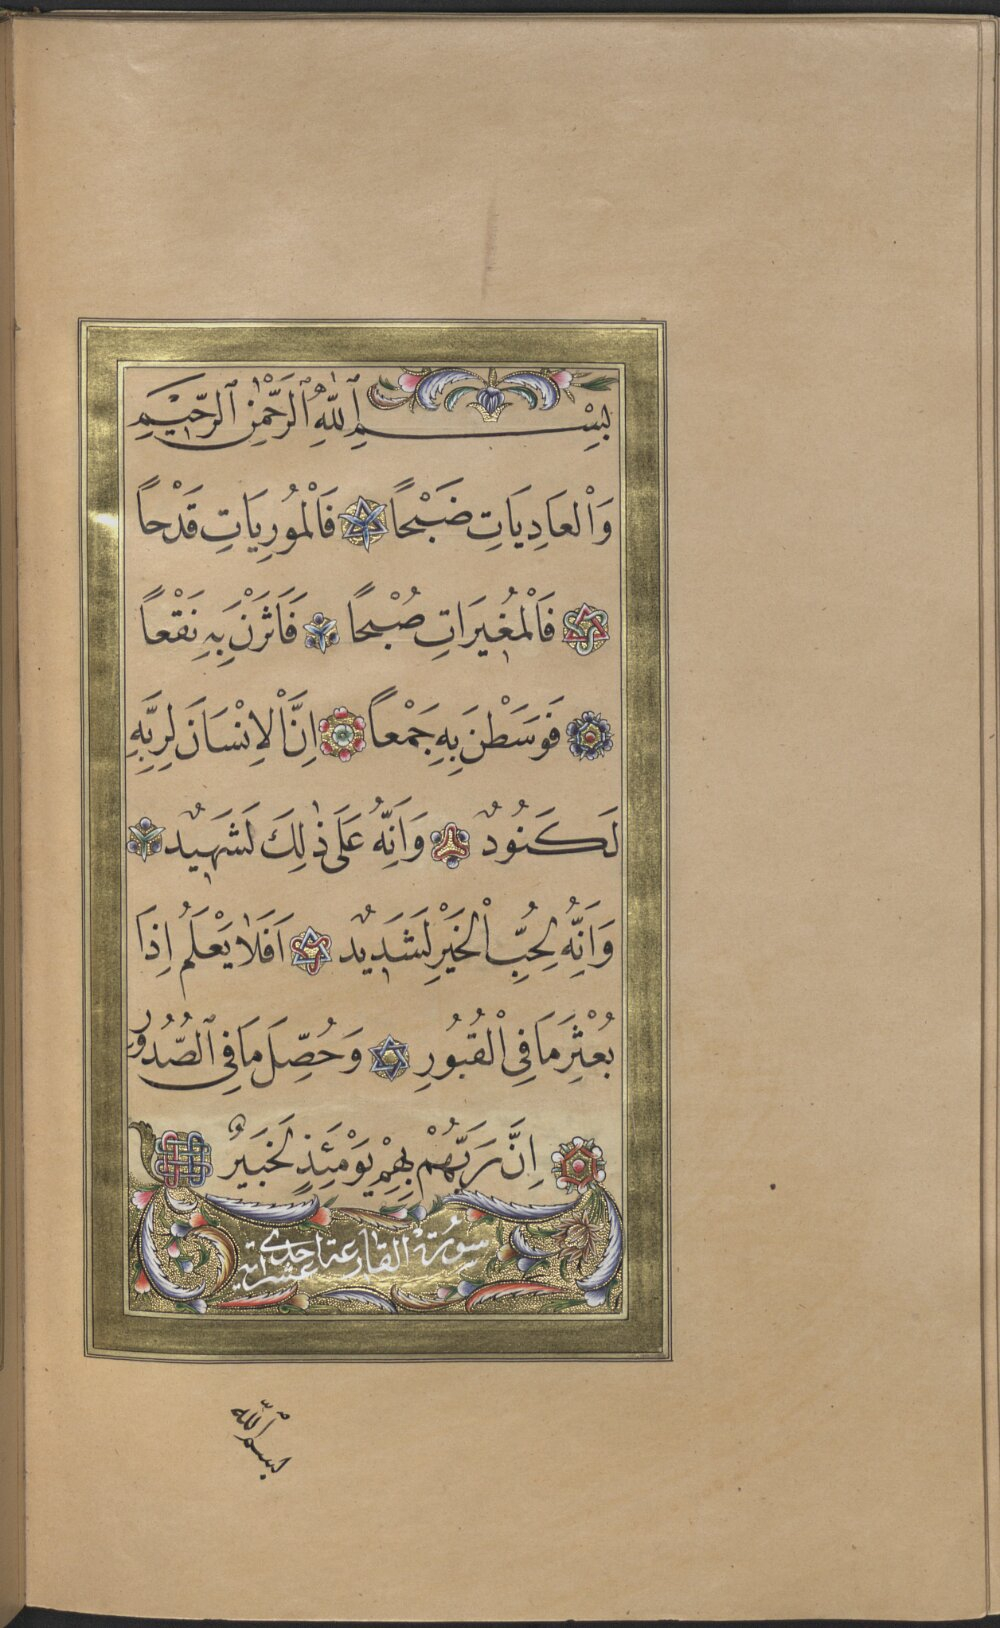 بِسْمِ ٱللّٰهِ ٱلرَّحْمٰنِ ٱلرَّحِيْمِ
وَالْعَادِيَاتِ ضَبْحًا فَالْمُورِيَاتِ قَدْحًا
فَالْمُغِيرَاتِ صُبْحًا فَاَثَرْنَ بِهِ نَقْعًا
فَوَسَطْنَ بِهِ جَمْعًا اِنَّ الْاِنْسَانَ لِرَبِّهِ
لَكَنُودٌ وَاِنَّهُ عَلٰى ذٰلِكَ لَشَهِيدٌ
وَاِنَّهُ لِحُبِّ الْخَيْرِ لَشَدِيدٌ اَفَلَا يَعْلَمُ اِذَا
بُعْثِرَ مَا فِى الْقُبُورِ وَحُصِّلَ مَا فِى ٱلصُّدُورِ
اِنَّ رَبَّهُمْ بِهِمْ يَوْمَئِذٍ لَخَبِيرٌ
سورة القارعة احدى عشر اية
بسم الله